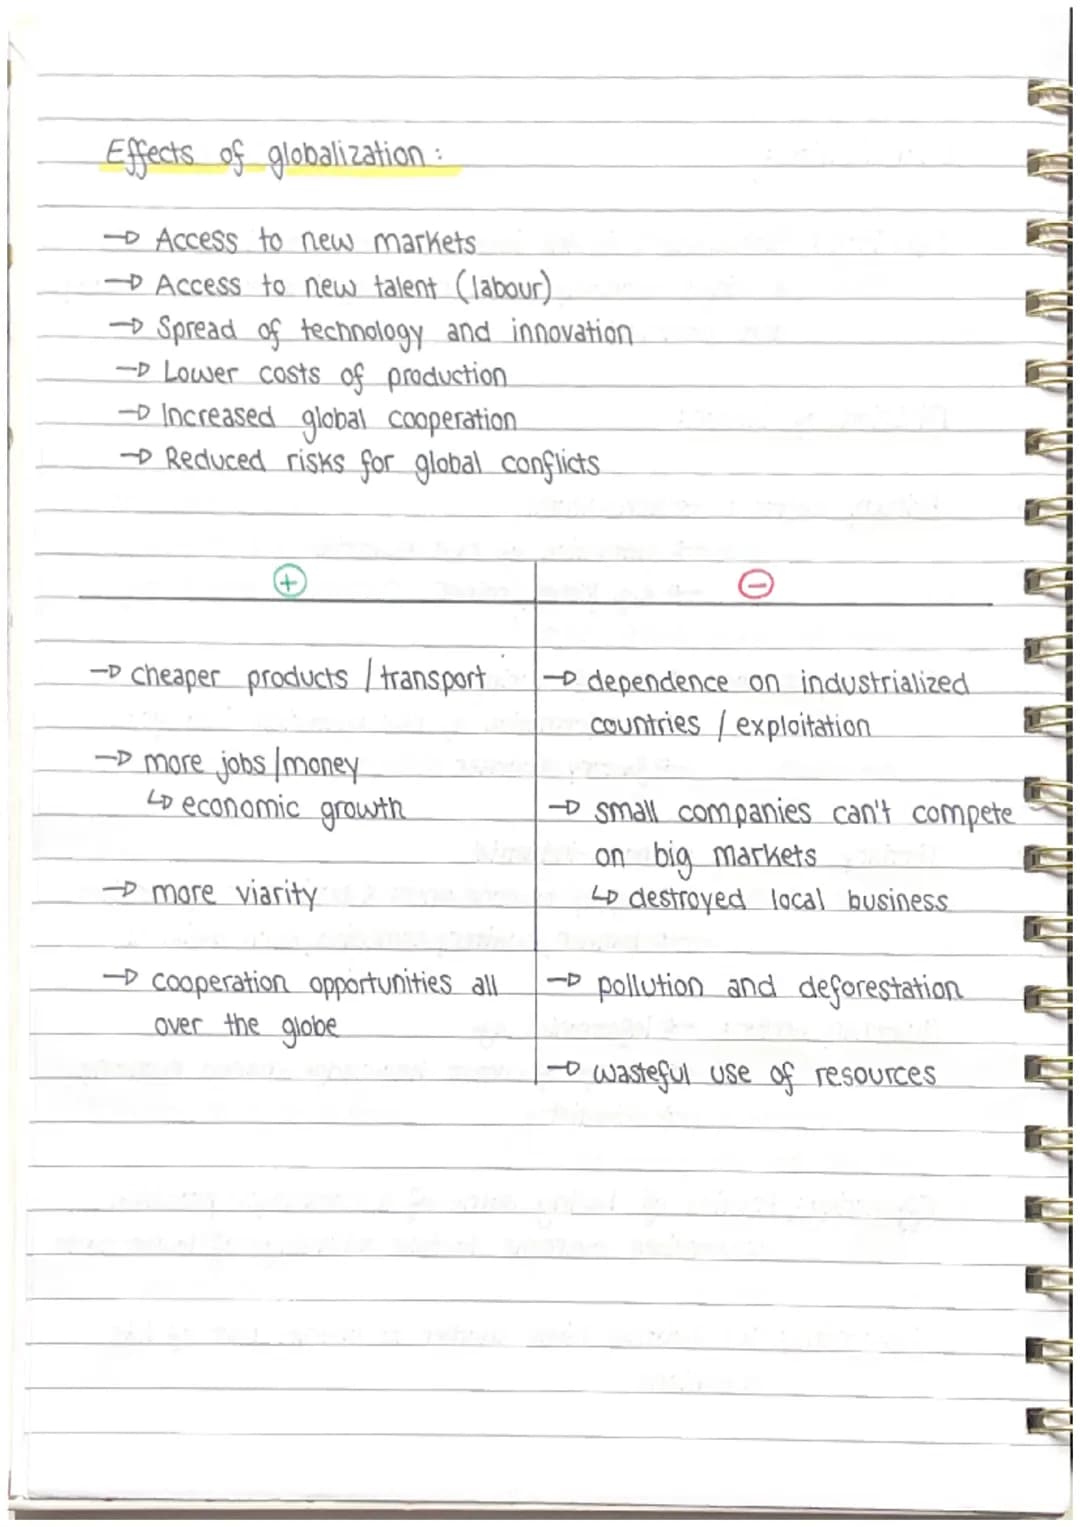 Effects of globalization:
→ Access to new markets
→ Access to new talent (labour)
→ Spread of technology and innovation
→ Lower costs of production
→ Increased global cooperation
→ Reduced risks for global conflicts
+
→ cheaper products / transport
→ more jobs / money
↳ economic growth
→ more viarity
→ cooperation opportunities all
over the globe
−
→ dependence on industrialized
countries / exploitation
→ small companies can't compete
on big markets
↳ destroyed local business
→ pollution and deforestation
→ wasteful use of resources